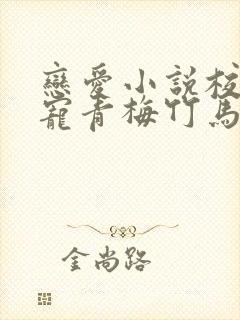 戀愛小説校
寵青梅竹馬
金尚路